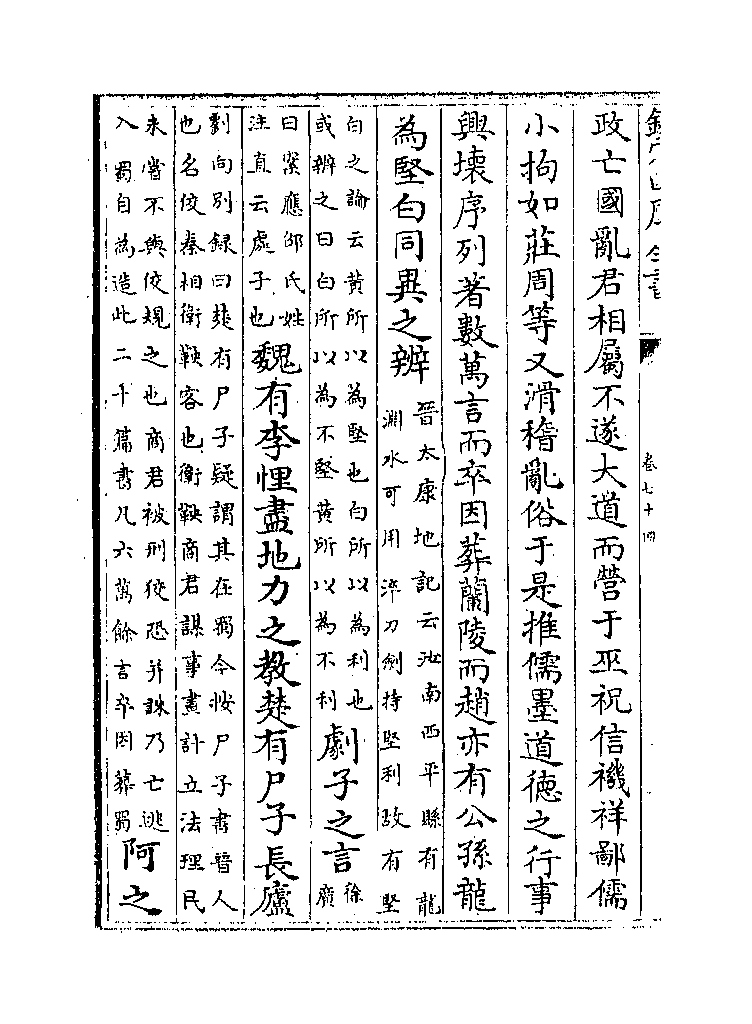 欽定四庫全書
卷七十四
政亡國亂君相屬不遂大道而營于巫祝信禨祥鄙儒
小拘如莊周等又滑稽亂俗于是推儒墨道德之行事
興壞序列著數萬言而卒因葬蘭陵而趙亦有公孫龍
為堅白同異之辨
晉太康地記云汝南西平縣有龍
淵水可用淬刀劍持堅利故有堅
白之論云黄所以為堅也白所以為利也
或辨之曰白所以為不堅黄所以為不利
劇子之言
徐
廣
曰案應邵氏姓
注直云處子也
魏有李悝盡地力之教楚有尸子長廬
劉向別録曰楚有尸子疑謂其在蜀今按尸子書晉人
也名佼秦相衛鞅客也衛鞅商君謀事畫計立法理民
未嘗不與佼規之也商君被刑佼恐并誅乃亡逃
入蜀自為造此二十篇書凡六萬餘言卒因葬蜀
阿之